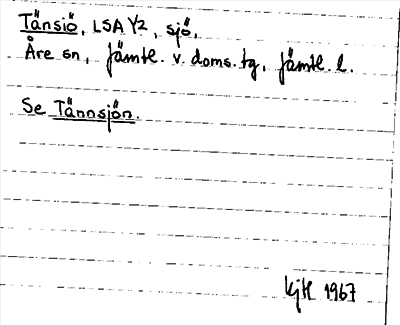 Tänsiö, LSA Y2, sjö,
Åre sn, Jämtl. v. doms. tg, Jämtl. l.
Se Tännsjön.
1967